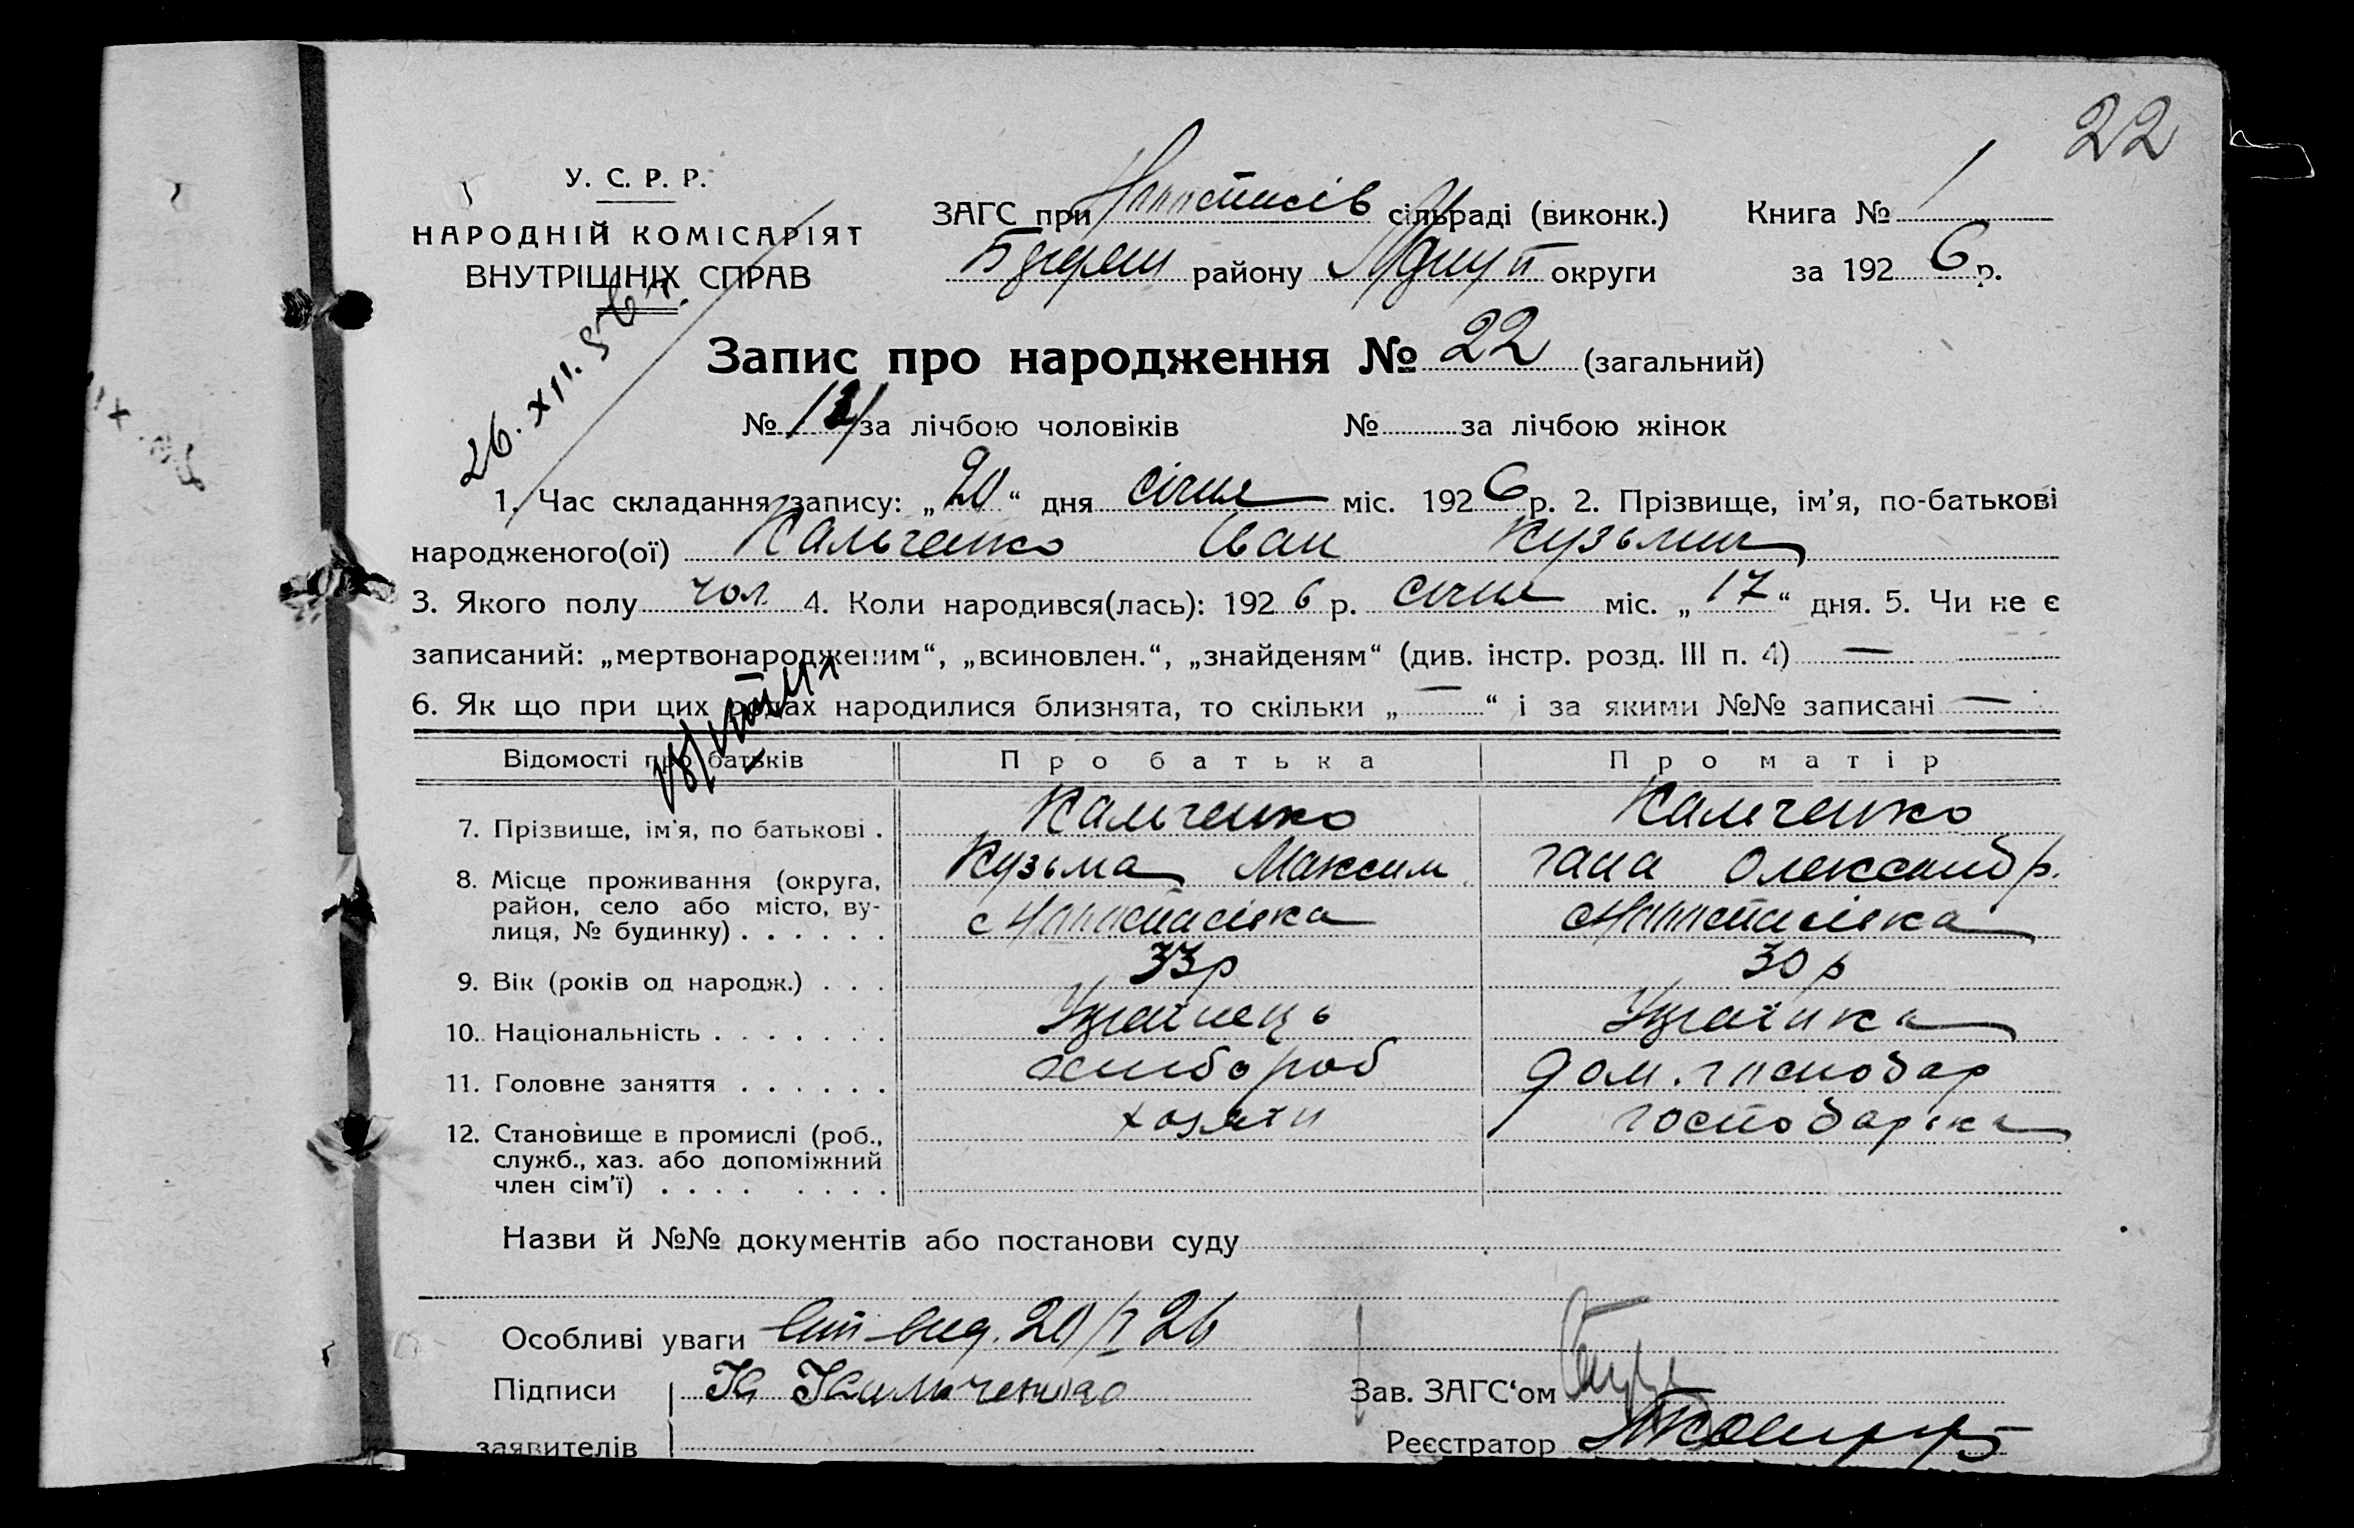 22
У. С. Р. Р.
НАРОДНІЙ КОМІСАРІЯТ
ВНУТРІШНІХ СПРАВ
ЗАГС при сільраді (виконк.) Книга № 1
району округи за 1926 р.
26.XII.56 г.
Запис про народження № 22 (загальний)
№ за лічбою чоловіків № за лічбою жінок
1. Час складання запису: „20“ дня січня міс. 1926 р. 2. Прізвище, ім'я, по-батькові
народженого(ої) Кальченко Іван Кузьмич
3. Якого полу чол. 4. Коли народився(лась): 1926 р. січня міс. „17“ дня. 5. Чи не є
записаний: „мертвонародженим“, „всиновлен.“, „знайденям“ (див. інстр. розд. III п. 4) —
6. Як що при цих родах народилися близнята, то скільки „—“ і за якими №№ записані —
Відомості про батьків Про батька Про матір
7. Прізвище, ім'я, по батькові . Кальченко Кальченко
Кузьма Максим. гана Олександр.
8. Місце проживання (округа,
район, село або місто, ву-
лиця, № будинку) . . . . . .
9. Вік (років од народж.) . . . 33р 30 р
10. Національність . . . . . . . Українець Українка
11. Головне заняття . . . . . . хлібороб дом. господар
12. Становище в промислі (роб., хазяїн господарка
служб., хаз. або допоміжний
член сім'ї) . . . . . . . .
Назви й №№ документів або постанови суду
Особливі уваги вит вид. 20/I 26
Підписи К Кальченко Зав. ЗАГС‘ом
заявителів Реєстратор